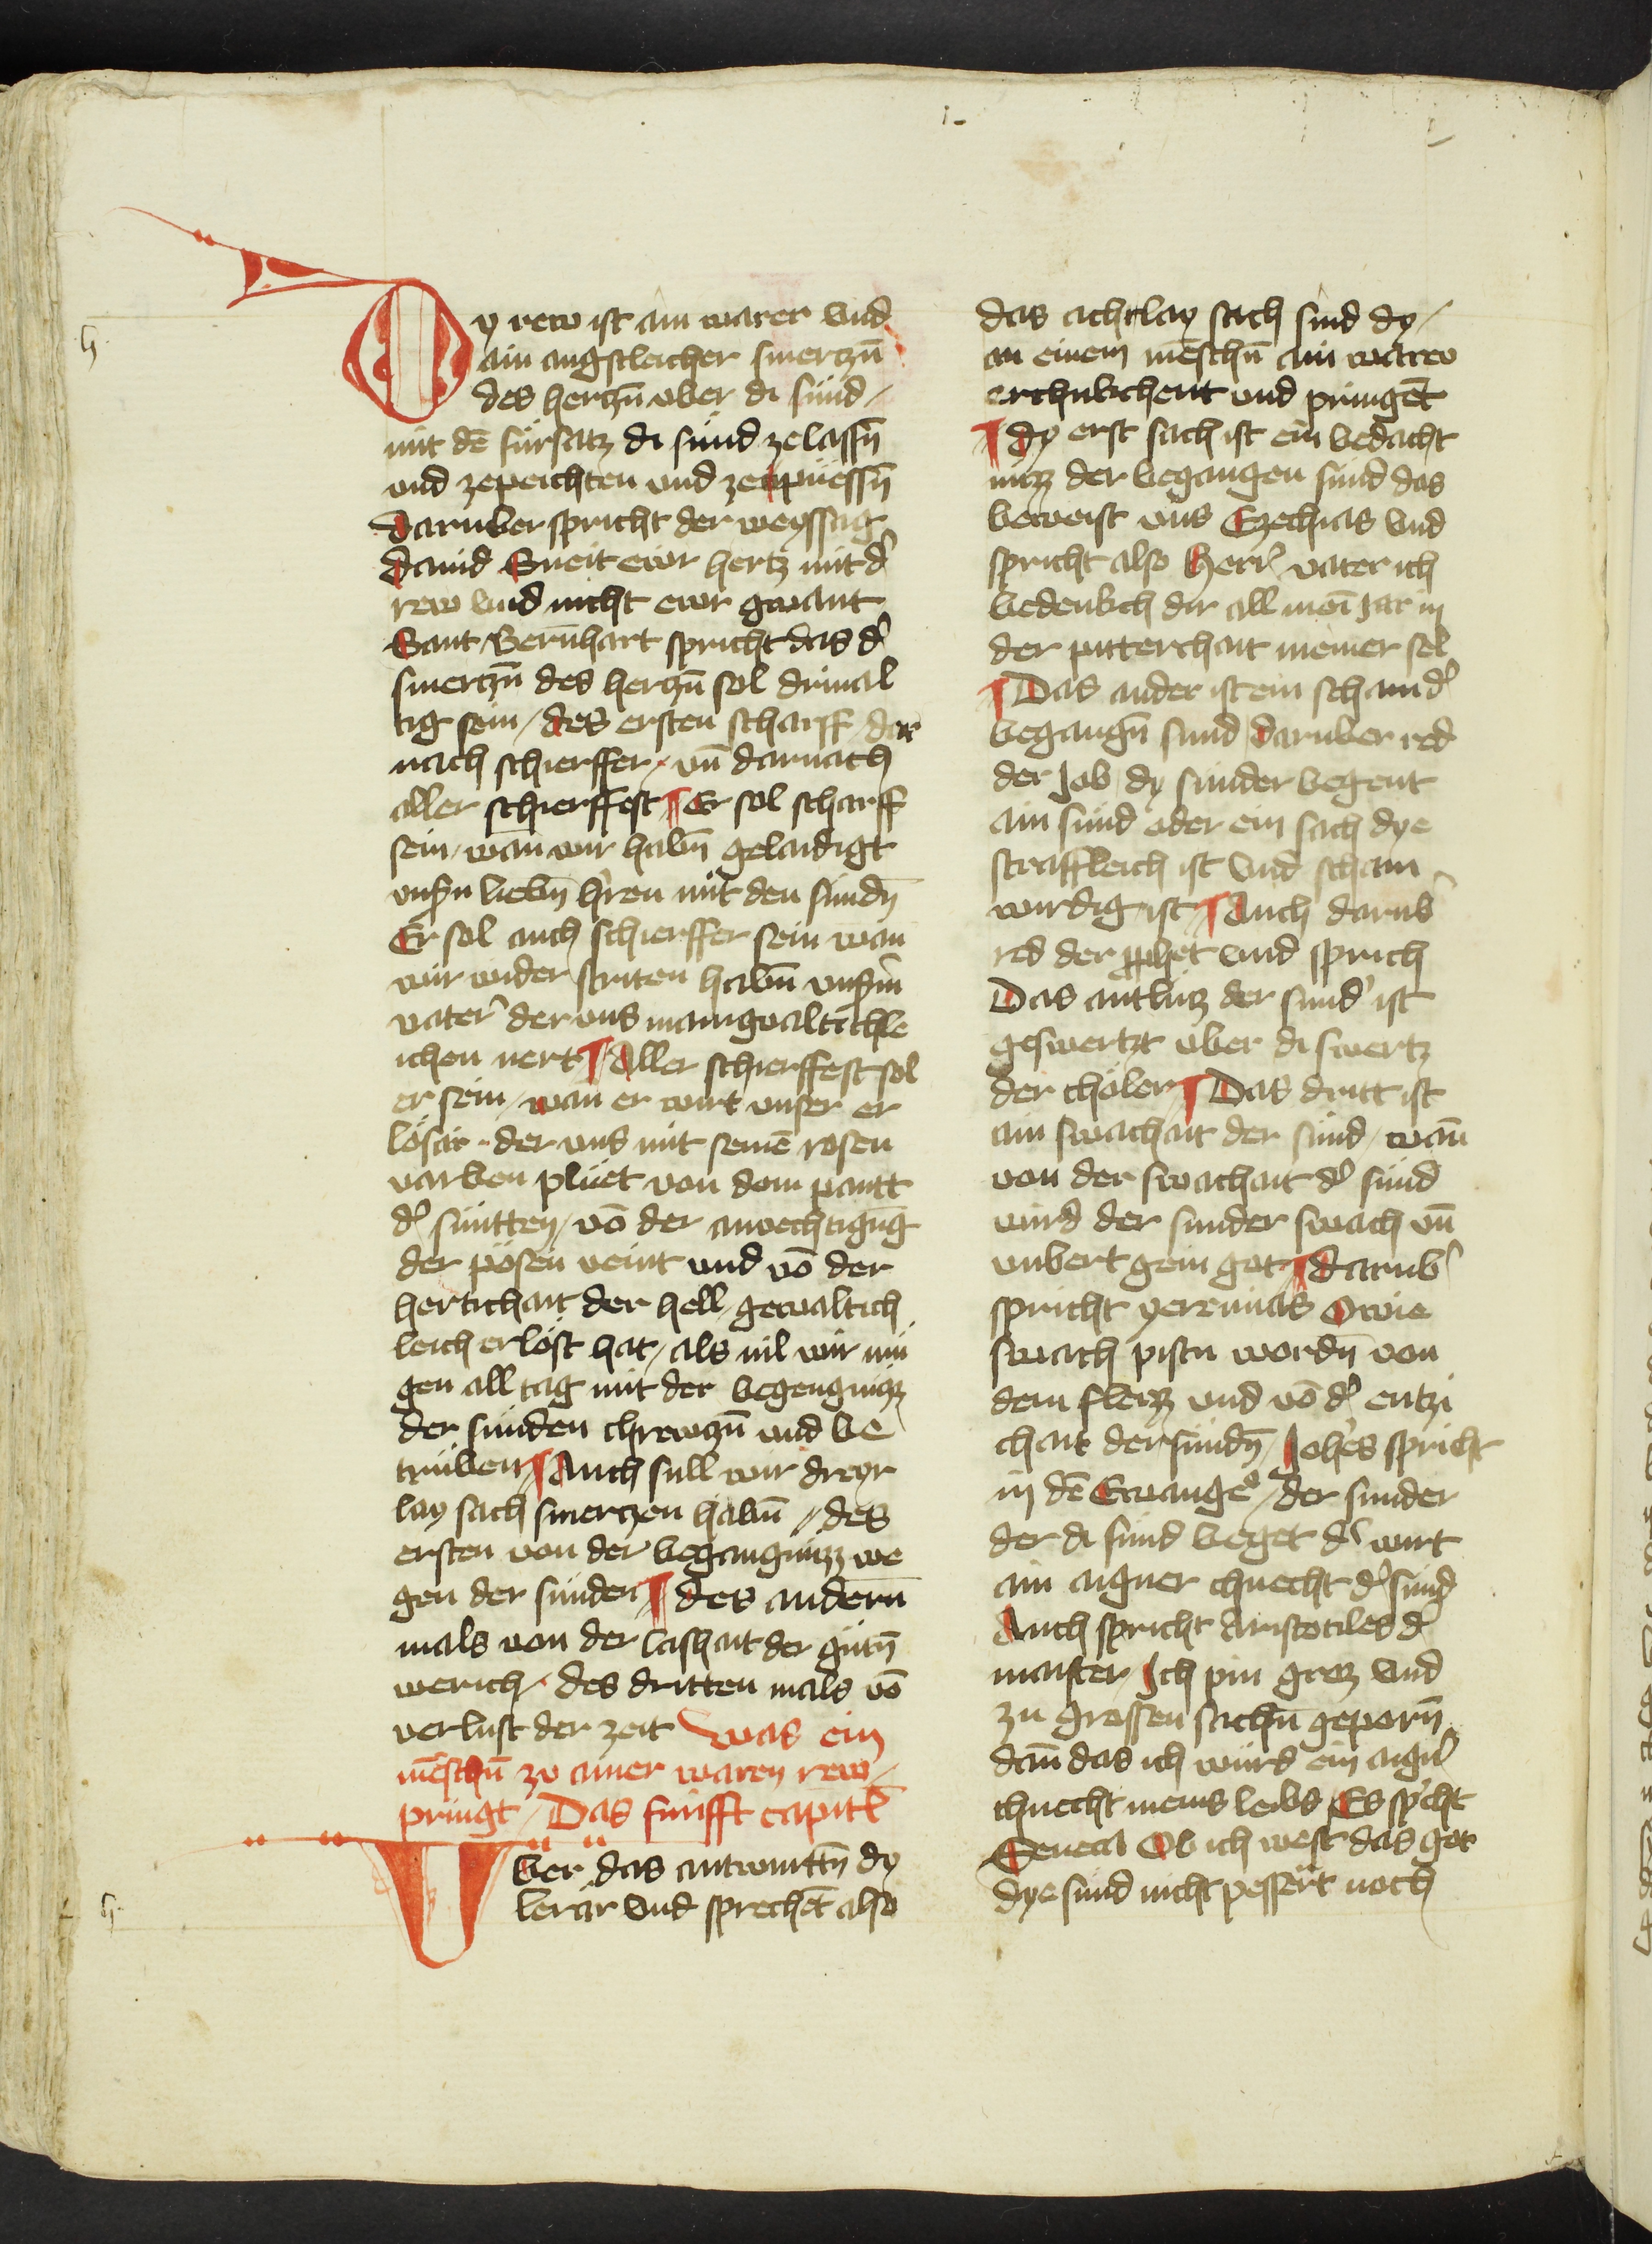 Dy rew ist ain warer vnd
ain angstleicher smerczn̄
des herczn̄ vber di sünd /
mit dē fürsatz di sünd zelassn̄
vnd zepeichten vnd zepüessn̄
Daruber spricht der weyssag
Dauid Sneit ewr hertz mit d'
rew vnd nicht ewr gwant
Sant Bernhart spricht das d'
smerczn̄ des herczn̄ sol driual
tig sein / des ersten scharff / dar
nach schierffer / vn̄ darnach
aller schierffest ¶ Er sol scharff
sein / wan wir habn̄ gelaidigt
vnsn lieben h'ren mit den sündn̄
Er sol auch schierffer sein wan
wir wider striten habn̄ vnserm
vater der vns manigualtichle
ichen nert ¶ Aller schierffest sol
er sein / wan er wirt vnser er
lösär / der vns mit seinē rosen
varben plüet von dem pantt
d' sünttn̄ / vō der anvechtigūg
der pösen veint vnd vō der
hertichait der hell / gewaltich
leich erlöst hat / als vil wir mü
gen all tag mit der begengnizz
der sünden chrewczn̄ vnd be
trüben ¶ Auch sull wir dreyr
lay sach smerczen habn̄ / des
ersten von der begangnizz we
gen der sünden ¶ des andern
mals von der lashait der gütn̄
werich / des dritten mals vō
verlust der zeit Was ein
mēschn̄ zu ainer waren rew /
pringt / Das fünfft capitl
Vber das antwurttn̄ dy
lerär vnd sprechēt also
das achtlay sach sind dy /
an einem mēschn̄ ain ware
erchukchent vnd pringēt
¶ dy erst sach ist ein bedacht
nizz der begangen sünd das
beweist vns Ezechias vnd
spricht also Herr vater ich
bedenkch dir all mein jar in
der pitterchait meiner sel
¶ Das ander ist ein scham d'
begangn̄ sünd / daruber red
der Job / dy sünder begent
ain sünd oder ein sach dye
straffleich ist vnd scham
wirdig ist ¶ Auch darub'
red der prophet vnd sprich
Das antlütz der sünd' ist
geswertzt vber di swertz
der choler ¶ Das dritt ist
ain swachait der sünd / wan̄
von der swachait d' sünd
wird der sunder swach vn̄
vnbert gein got ¶ darub'
spricht yeremias O wie
swach pistu wordn̄ von
dem fleizz vnd vō d' entzi
chait der sündn̄ / Joh'es spricht
in dē Ewange° / der sunder
der di sünd beget d' wirt
ain aigner chnecht d' sünd
Auch spricht Aristotiles d'
maister / Ich pin groz vnd
zu grossen sachn̄ geporn̄
dan̄ das ich würd ein aign'
chnecht meins leibs / Es sp'cht
Seneca Ob ich west das got
dye sünd nicht pessert noch